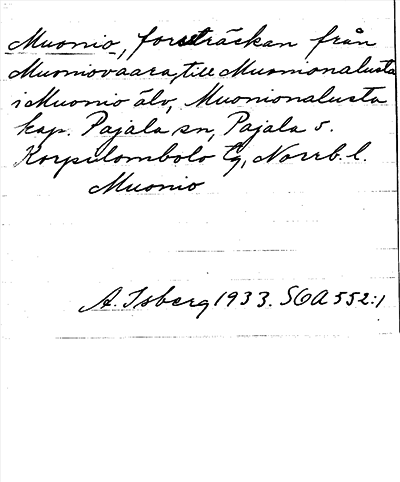 Muonio, forssträckan från
Muoniovaara, till Muonionalusta
i Muonio älv, Muonionalusta
kap. Pajala sn, Pajala o.
Korpilombolo tg, Norrb. l.
Muonio
A. Isberg 1933. SOA 552:1